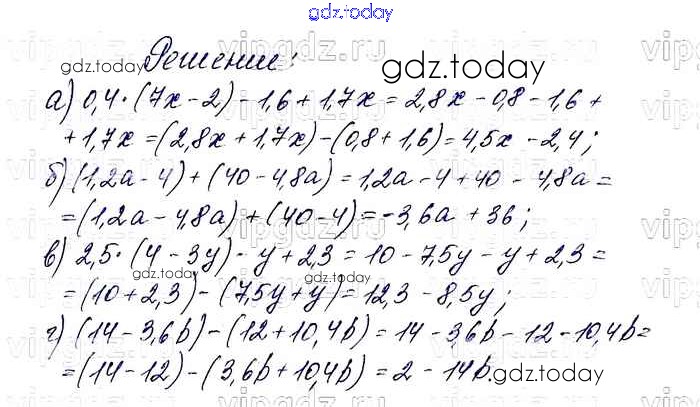 gdz.today
Решение:
а) 0,4·(7x-2)-1,6+1,7x=2,8x-0,8-1,6+
+1,7x=(2,8x+1,7x)-(0,8+1,6)=4,5x-2,4;
б) (1,2a-4)+(40-4,8a)=1,2a-4+40-4,8a=
=(1,2a-4,8a)+(40-4)=-3,6a+36;
в) 2,5·(4-3y)-y+2,3=10-7,5y-y+2,3=
=(10+2,3)-(7,5y+y)=12,3-8,5y;
г) (14-3,6b)-(12+10,4b)=14-3,6b-12-10,4b=
=(14-12)-(3,6b+10,4b)=2-14b.
gdz.today
gdz.today
gdz.today
gdz.today
vipgdz.ru